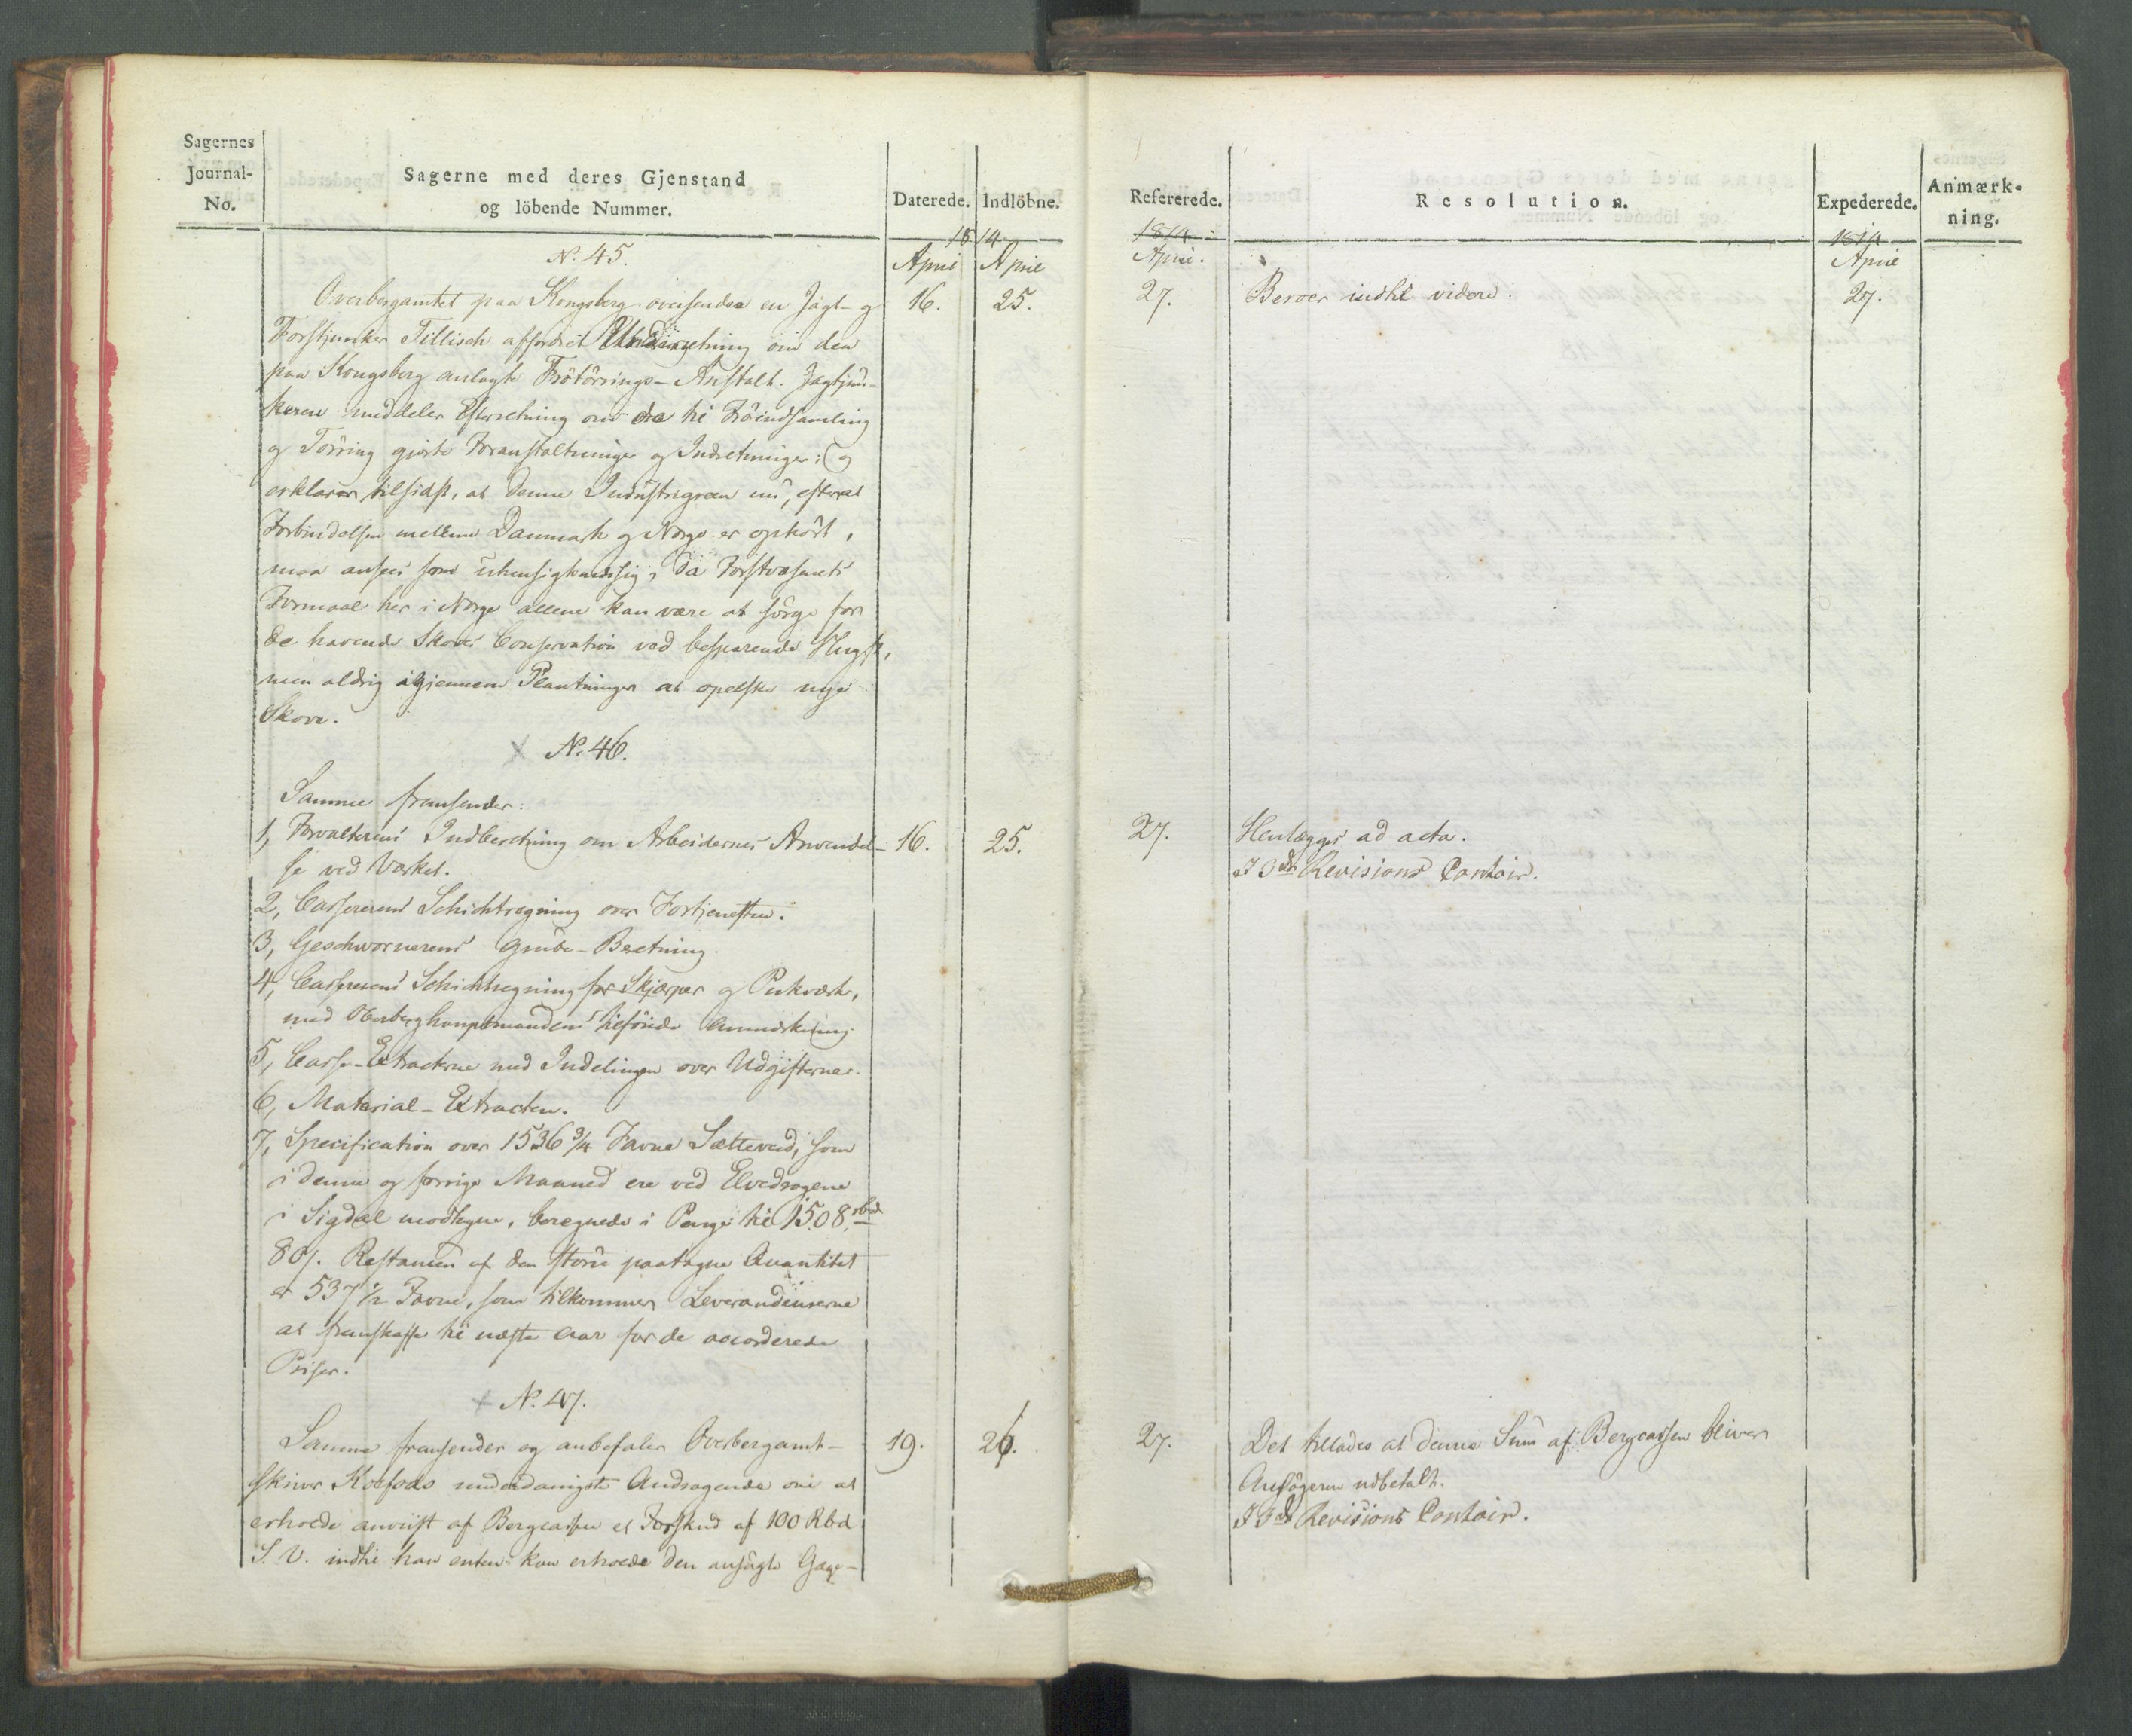 Sagernes
Journal-
No.
Sagerne med deres Gjenstand
og löbende Nummer.
Daterede.
Indlöbne.
1814
April
April
N. 45.
Overbergamtet paa Kongsberg oversender en Jagt- og
16.
25.
Forstjunker Tillisch affordret Underretning om den
paa Kongsberg anlagte Frötörrings-Anstalt. Jagtjun-
keren meddeler Efterretning om de til Fröindsamling
og Törring gjorte Foranstaltninger og Indretninger; og
erklærer tilsidst, at denne Industrigreen nu, efterat
Forbindelsen mellem Danmark og Norge er ophört,
maa ansees som uhensigtmæssig, da Forstvæsenets
Formaal her i Norge allene kan være at sörge for
de havende Skoves Conservation ved besparende Hugst,
men aldrig igjennem Plantninger at opelske nye
Skove.
N. 46.
Samme fremsender:
1, Forvalterens Indberetning om Arbeidernes Anvendel-
16.
25.
se ved Værket.
2, Cassererens Schichtregning over Fortjenesten.
3, Geschwornerens Grube-Beretning.
4, Cassererens Schichtregning for Skjerper og Pukværk,
med Oberberghauptmandens tilföiede Anmærkning.
5, Casse-Extracterne med Inddelingen over Udgifterne.
6, Material-Extracten.
7, Specification over 1536 3/4 Favne Sætteved, som
i denne og forrige Maaned ere ved Elvedragene
i Sigdal modtagne, beregnede i Penge til 1508 rbd
80 s. Restancen af den störe paatagne Quantitet
er 537 1/2 Favne, som tilkommer Leverandeurerne
at fremskaffe til næste Aar for de accorderede
Priser.
N. 47.
Samme fremsender og anbefaler Overbergamt-
19.
26.
skriver underdanigste Andragende om at
erholde anviist af Bergcassen et Forskud af 100 Rbd
S. V. indtil han enten kan erholde den ansögte Gage-
Refererede.
Resolution.
Expederede.
Anmærk-
ning.
1814
April.
1814
April
27.
Beroer indtil videre.
27.
27.
Henlægges ad acta.
I 3die Revisions Contoir.
27.
Det tillades at denne Sum af Bergcassen bliver
Ansögeren udbetalt.
I 3d Revisions Contoir.